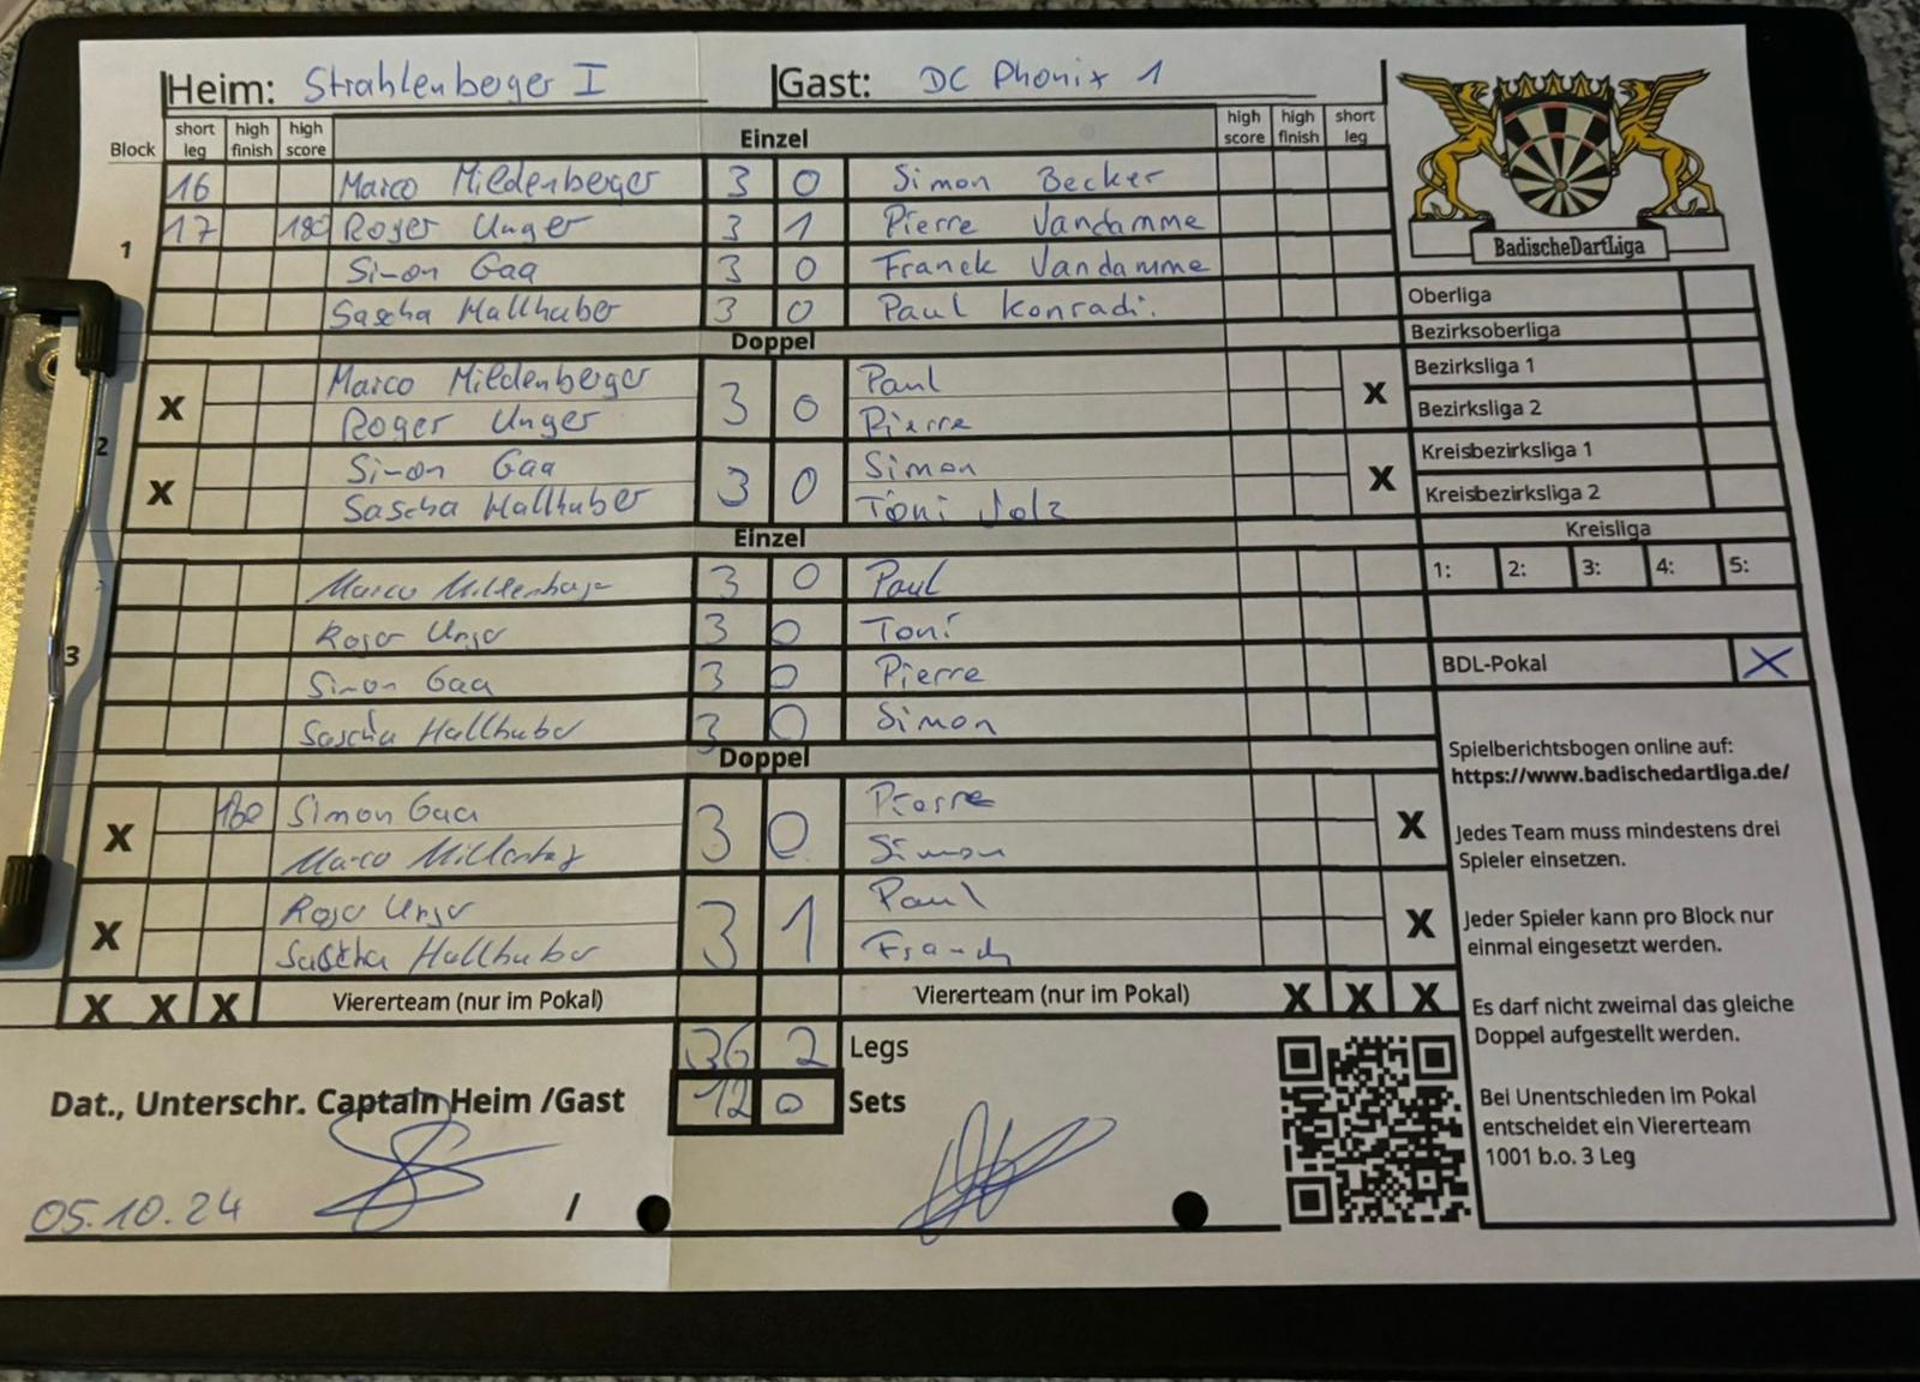 Heim: Strahlenberger I Gast: DC Phönix 1
Block short leg high finish high score Einzel high score high finish short leg
16 Marco Mildenberger 3 0 Simon Becker
17 180 Roger Unger 3 1 Pierre Vandamme
1
Simon Gaa 3 0 Franck Vandamme
Sascha Hallhuber 3 0 Paul Konradi.
Doppel
X Marco Mildenberger 3 0 Paul X
Roger Unger Pierre
2
X Simon Gaa 3 0 Simon X
Sascha Hallhuber Toni
Einzel
Marco 3 0 Paul
Roger Unger 3 0 Toni
3
Simon Gaa 3 0 Pierre
Sascha Hallhuber 3 0 Simon
Doppel
X 180 Simon Gaa 3 0 Pierre X
Marco Simon
X Roger Unger 3 1 Paul X
Sascha Hallhuber Franck
X X X Viererteam (nur im Pokal) Viererteam (nur im Pokal) X X X
36 2 Legs
Dat., Unterschr. Captain Heim /Gast 12 0 Sets
05.10.24 /
BadischeDartLiga
Oberliga
Bezirksoberliga
Bezirksliga 1
Bezirksliga 2
Kreisbezirksliga 1
Kreisbezirksliga 2
Kreisliga
1: 2: 3: 4: 5:
BDL-Pokal X
Spielberichtsbogen online auf:
https://www.badischedartliga.de/
Jedes Team muss mindestens drei
Spieler einsetzen.
Jeder Spieler kann pro Block nur
einmal eingesetzt werden.
Es darf nicht zweimal das gleiche
Doppel aufgestellt werden.
Bei Unentschieden im Pokal
entscheidet ein Viererteam
1001 b.o. 3 Leg